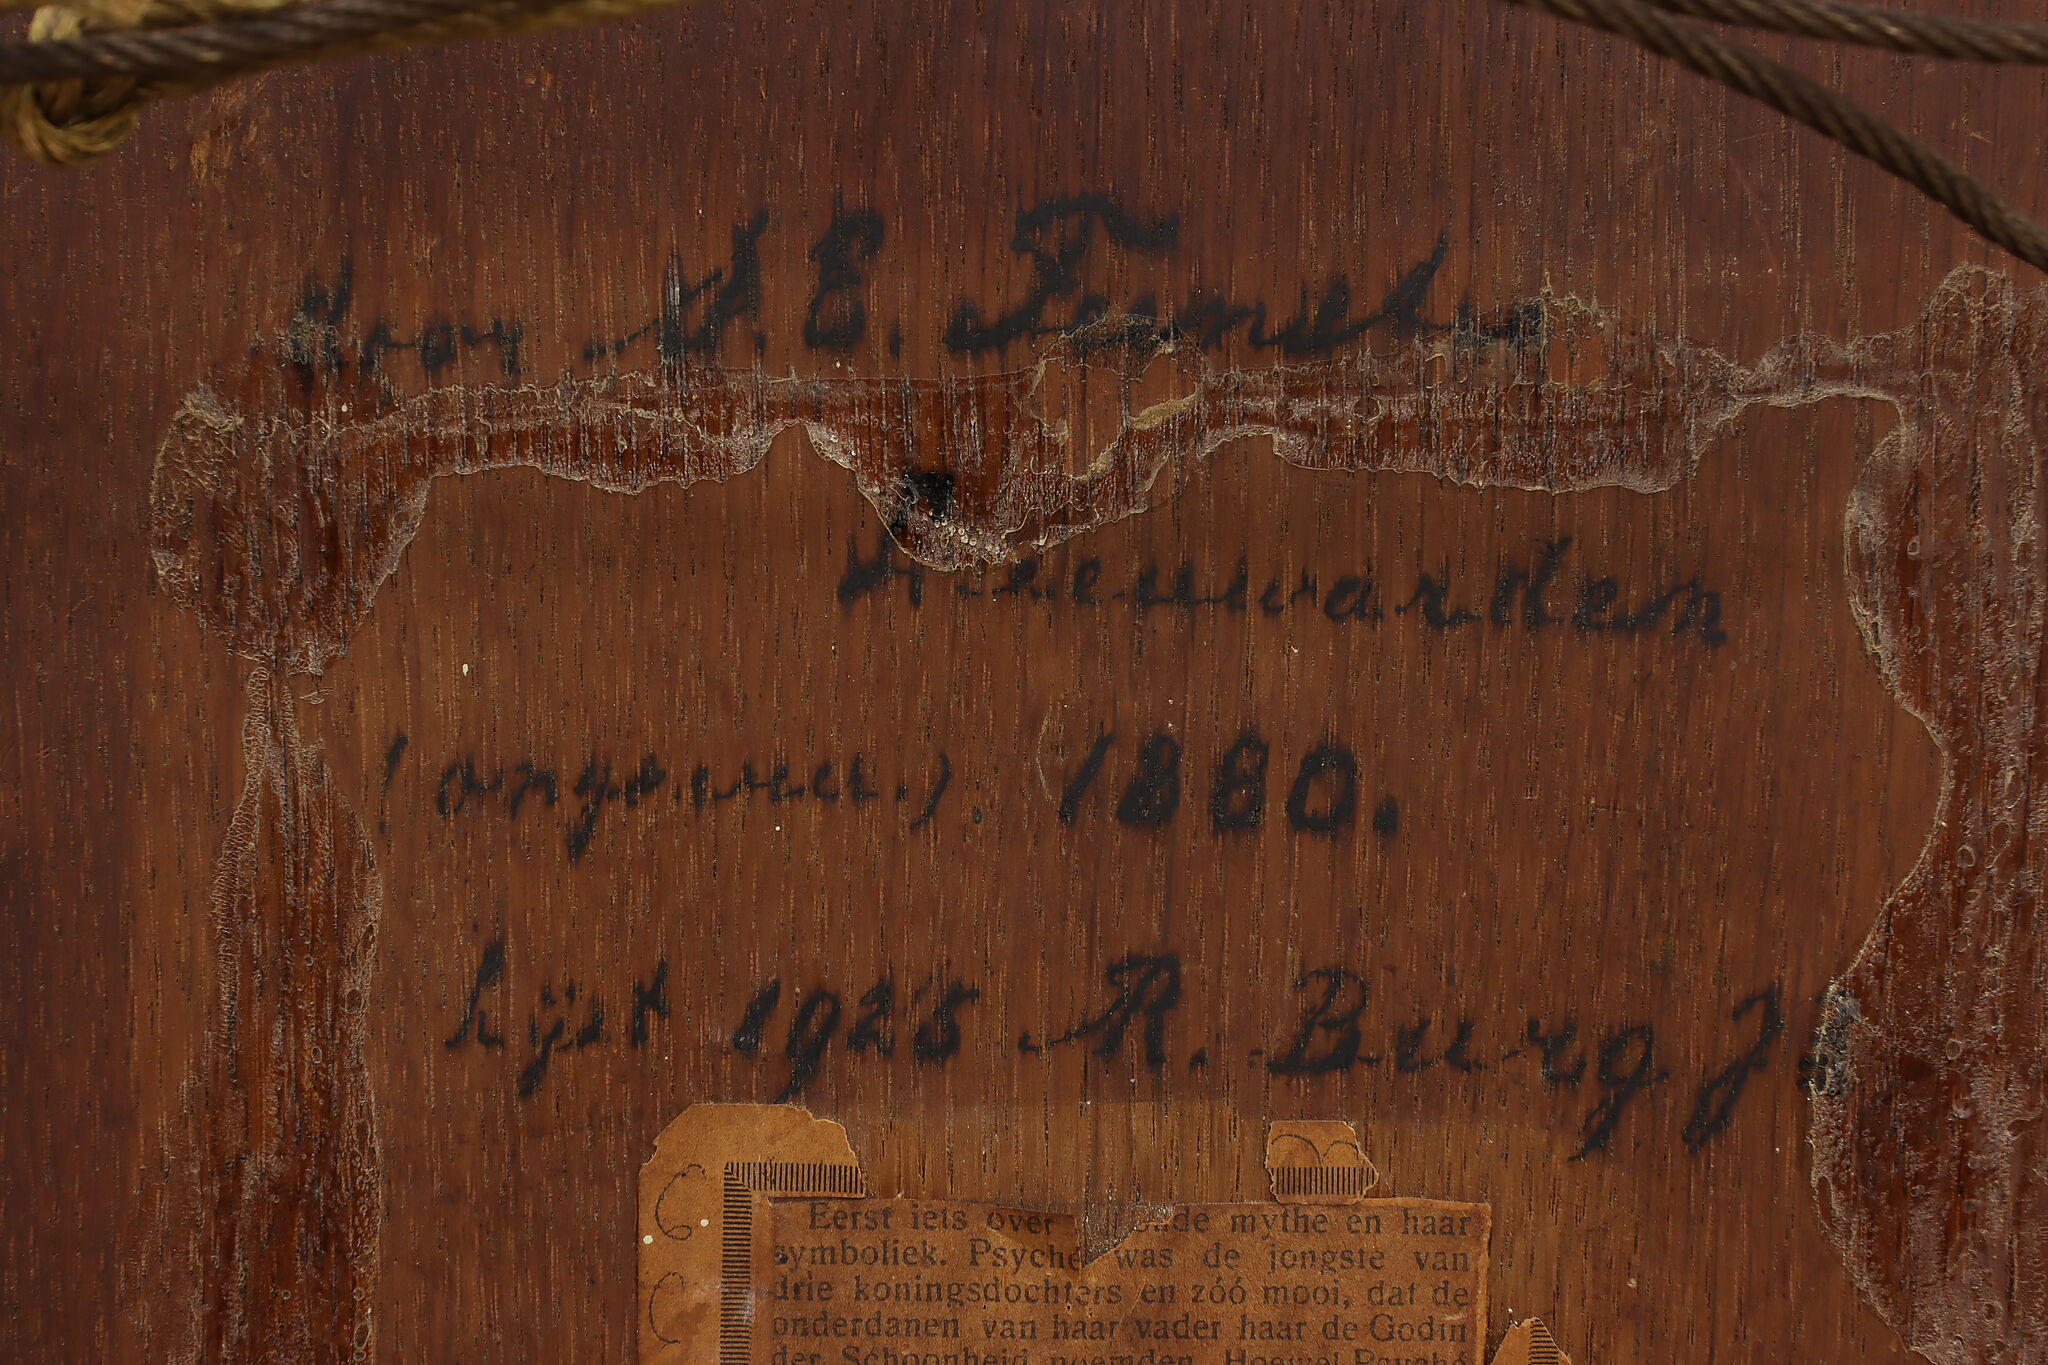 door A. E.
Leeuwarden
(ongeveer). 1880.
Lijst 1925 R. Burg Jr
Eerst iets over oude mythe en haar
symboliek. Psyché was de jongste van
drie koningsdochters en zóó mooi, dat de
onderdanen van haar vader haar de Godin
der Schoonheid noemden. Hoewel Psyché